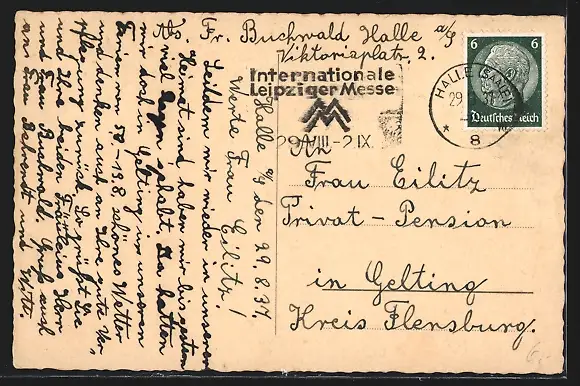 Abs. Fr. Buchwald Halle a/S
Viktoriaplatz 2.
Internationale
Leipziger Messe
29.VIII.-2.IX.
HALLE (SAALE)
29
8
6 6
Deutsches Reich
An
Frau Eilitz
Privat-Pension
in Gelting
Kreis Flensburg.
Halle a/S den 29.8.37.
Werte Frau Eilitz!
Seitdem wir wieder in unserer
Heimat sind haben wir bis jetzt
viel Regen gehabt. Da hatten
wir doch in Gelting in unseren
Ferien vom 5.-13.8. schönes Wetter
und denken auch an Ihre gute Ver-
pflegung zurück. Es grüßt Sie
und Ihre beiden Fräuleins Herr
und Frau Buchwald. Gruß auch
an Frau und